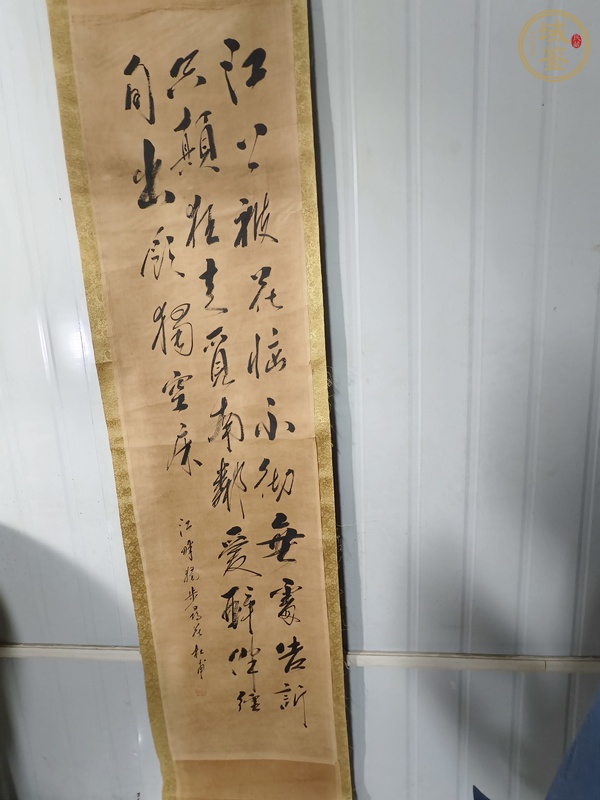 江上被花恼不彻無處告訴
只顛狂走覓南鄰愛醉伴經
旬出飲獨空床
江畔獨步尋花 杜甫